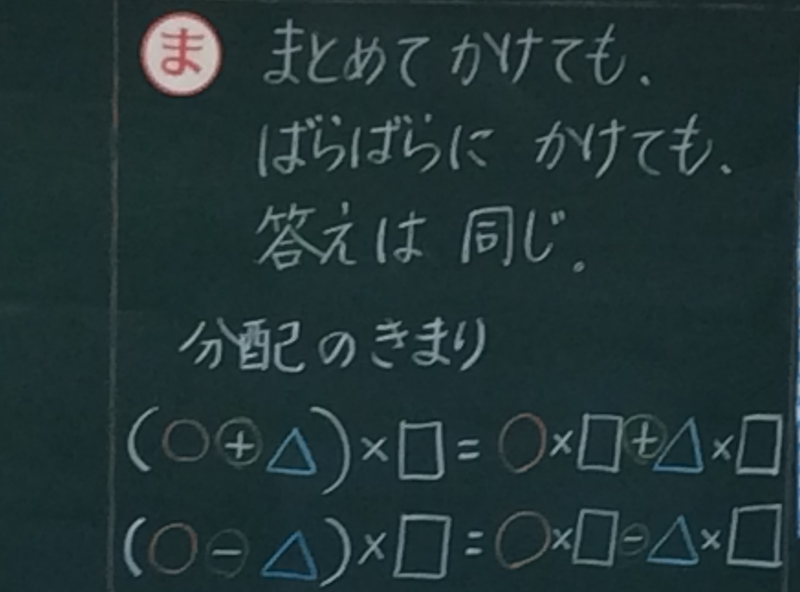 ま まとめて かけても、
ばらばらに かけても、
答えは 同じ。
分配のきまり
(○+△)×□=○×□+△×□
(○-△)×□=○×□-△×□